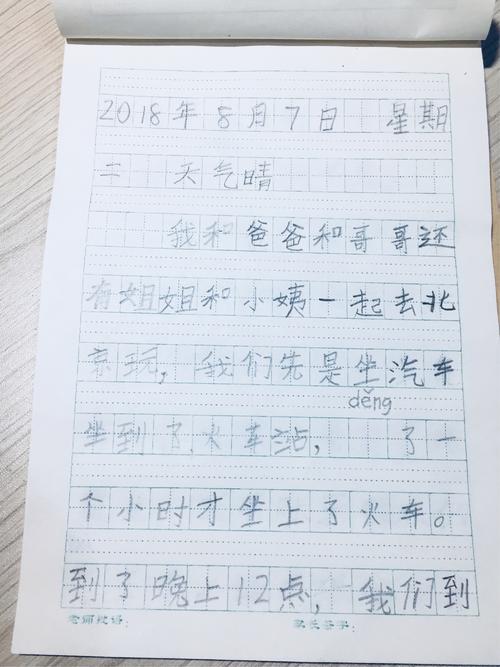 2018年8月7日 星期
二 天气晴
我和爸爸和哥哥还
有姐姐和小姨一起去北
京玩，我们先是坐汽车
děng
坐到了火车站， 了一
个小时才坐上了火车。
到了晚上12点， 我们到
老师批语： 家长签字：